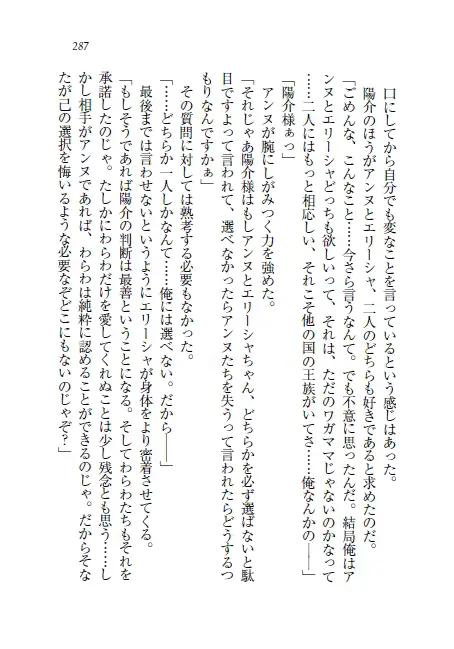 287
口にしてから自分でも変なことを言っているという感じはあった。
陽介のほうがアンヌとエリーシャ、二人のどちらも好きであると求めたのだ。
「ごめんな、こんなこと……今さら言うなんて。でも不意に思ったんだ。結局俺はア
ンヌとエリーシャどっちも欲しいって、それは、ただのワガママじゃないのかなって
……二人にはもっと相応しい、それこそ他の国の王族がいてさ……俺なんかの――」
「陽介様ぁっ」
アンヌが腕にしがみつく力を強めた。
「それじゃあ陽介様はもしアンヌとエリーシャちゃん、どちらかを必ず選ばないと駄
目ですよって言われて、選べなかったらアンヌたちを失うって言われたらどうするつ
もりなんですかぁ」
その質問に対しては熟考する必要もなかった。
「……どちらか一人しかなんて……俺には選べない。だから――」
最後までは言わせないというようにエリーシャが身体をより密着させてくる。
「もしそうであれば陽介の判断は最善ということになる。そしてわらわたちもそれを
承諾したのじゃ。たしかにわらわだけを愛してくれぬことは少し残念とも思う……し
かし相手がアンヌであれば、わらわは純粋に認めることができるのじゃ。だからそな
たが己の選択を悔いるような必要なぞどこにもないのじゃぞ？」